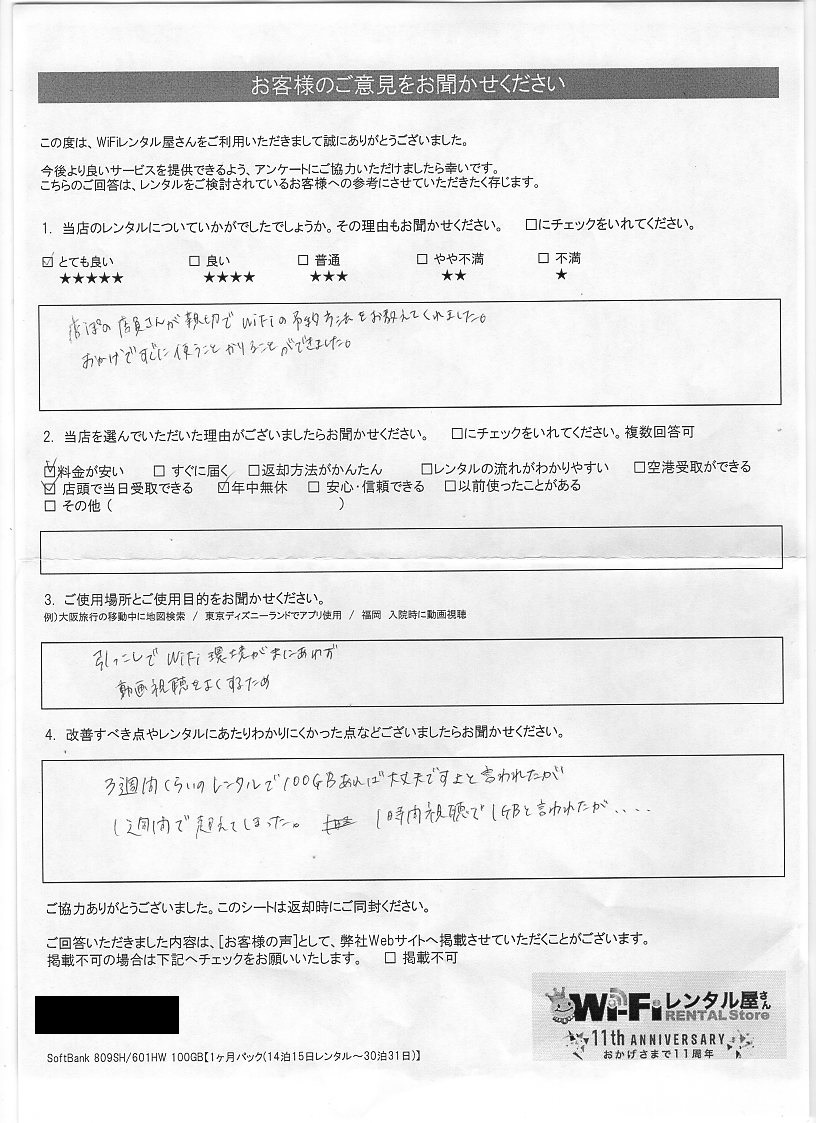 お客様のご意見をお聞かせください
この度は、WiFiレンタル屋さんをご利用いただきまして誠にありがとうございました。
今後より良いサービスを提供できるよう、アンケートにご協力いただけましたら幸いです。
こちらのご回答は、レンタルをご検討されているお客様への参考にさせていただきたく存じます。
1. 当店のレンタルについていかがでしたでしょうか。その理由もお聞かせください。 □にチェックをいれてください。
☑ とても良い □ 良い □ 普通 □ やや不満 □ 不満
★★★★★ ★★★★ ★★★ ★★ ★
店ぽの店員さんが親切でWiFiの予約方法をお教えてくれました。
おかげですぐに使うことかりることができました。
2. 当店を選んでいただいた理由がございましたらお聞かせください。 □にチェックをいれてください。複数回答可
☑料金が安い □ すぐに届く □返却方法がかんたん □レンタルの流れがわかりやすい □空港受取ができる
☑ 店頭で当日受取できる ☑年中無休 □ 安心・信頼できる □以前使ったことがある
□ その他 ( )
3. ご使用場所とご使用目的をお聞かせください。
例)大阪旅行の移動中に地図検索 / 東京ディズニーランドでアプリ使用 / 福岡 入院時に動画視聴
引っこしでWiFi環境がまにあわず
動画視聴をよくするため
4. 改善すべき点やレンタルにあたりわかりにくかった点などございましたらお聞かせください。
3週間くらいのレンタルで100GBあれば大丈夫ですよと言われたが
1週間で超えてしまった。 1時間視聴で1GBと言われたが....
ご協力ありがとうございました。このシートは返却時にご同封ください。
ご回答いただきました内容は、[お客様の声]として、弊社Webサイトへ掲載させていただくことがございます。
掲載不可の場合は下記へチェックをお願いいたします。 □ 掲載不可
Wi-Fiレンタル屋さん
RENTAL Store
11th ANNIVERSARY
おかげさまで11周年
SoftBank 809SH/601HW 100GB【1ヶ月パック(14泊15日レンタル～30泊31日)】